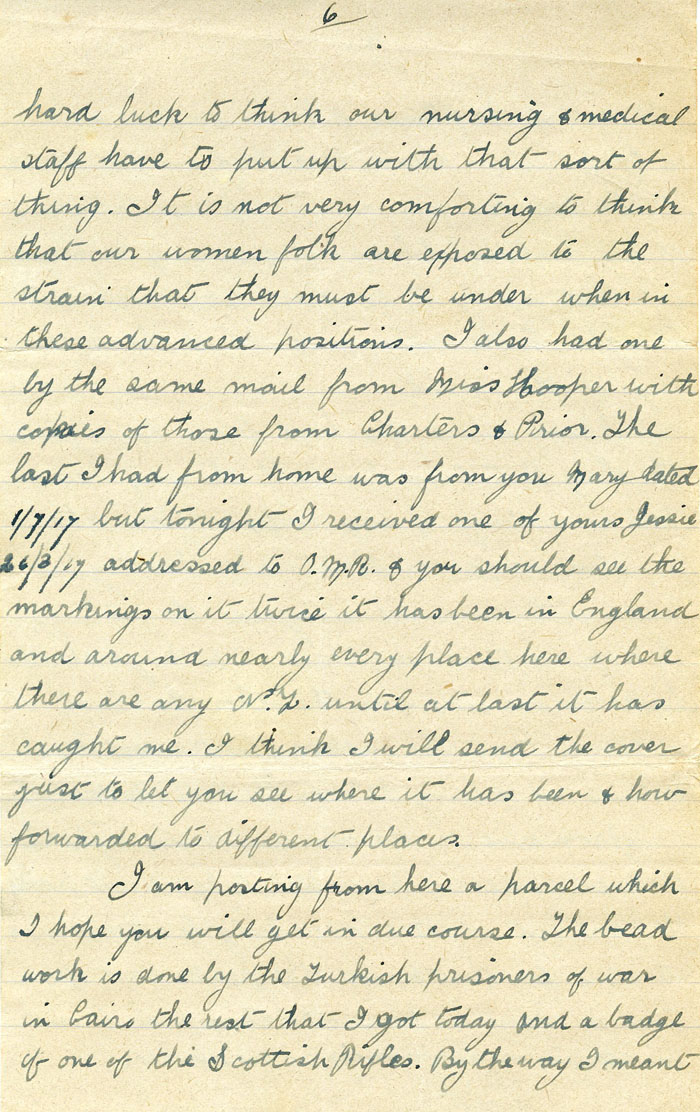 6
hard luck to think our nursing & medical
staff have to put up with that sort of
thing. It is not very comforting to think
that our women folk are exposed to the
strain that they must be under when in
these advanced positions. I also had one
by the same mail from Miss Hooper with
copies of those from Charters & Prior. The
last I had from home was from you Mary dated
1/7/17 but tonight I received one of yours Jessie
26/3/17 addressed to O.M.R. & you should see the
markings on it twice it has been in England
and around nearly every place here where
there are any N.Z. until at last it has
caught me. I think I will send the cover
just to let you see where it has been & how
forwarded to different places.
I am posting from here a parcel which
I hope you will get in due course. The bead
work is done by the Turkish prisoners of war
in Cairo the rest that I got today and a badge
of one of the Scottish Rifles. By the way I meant